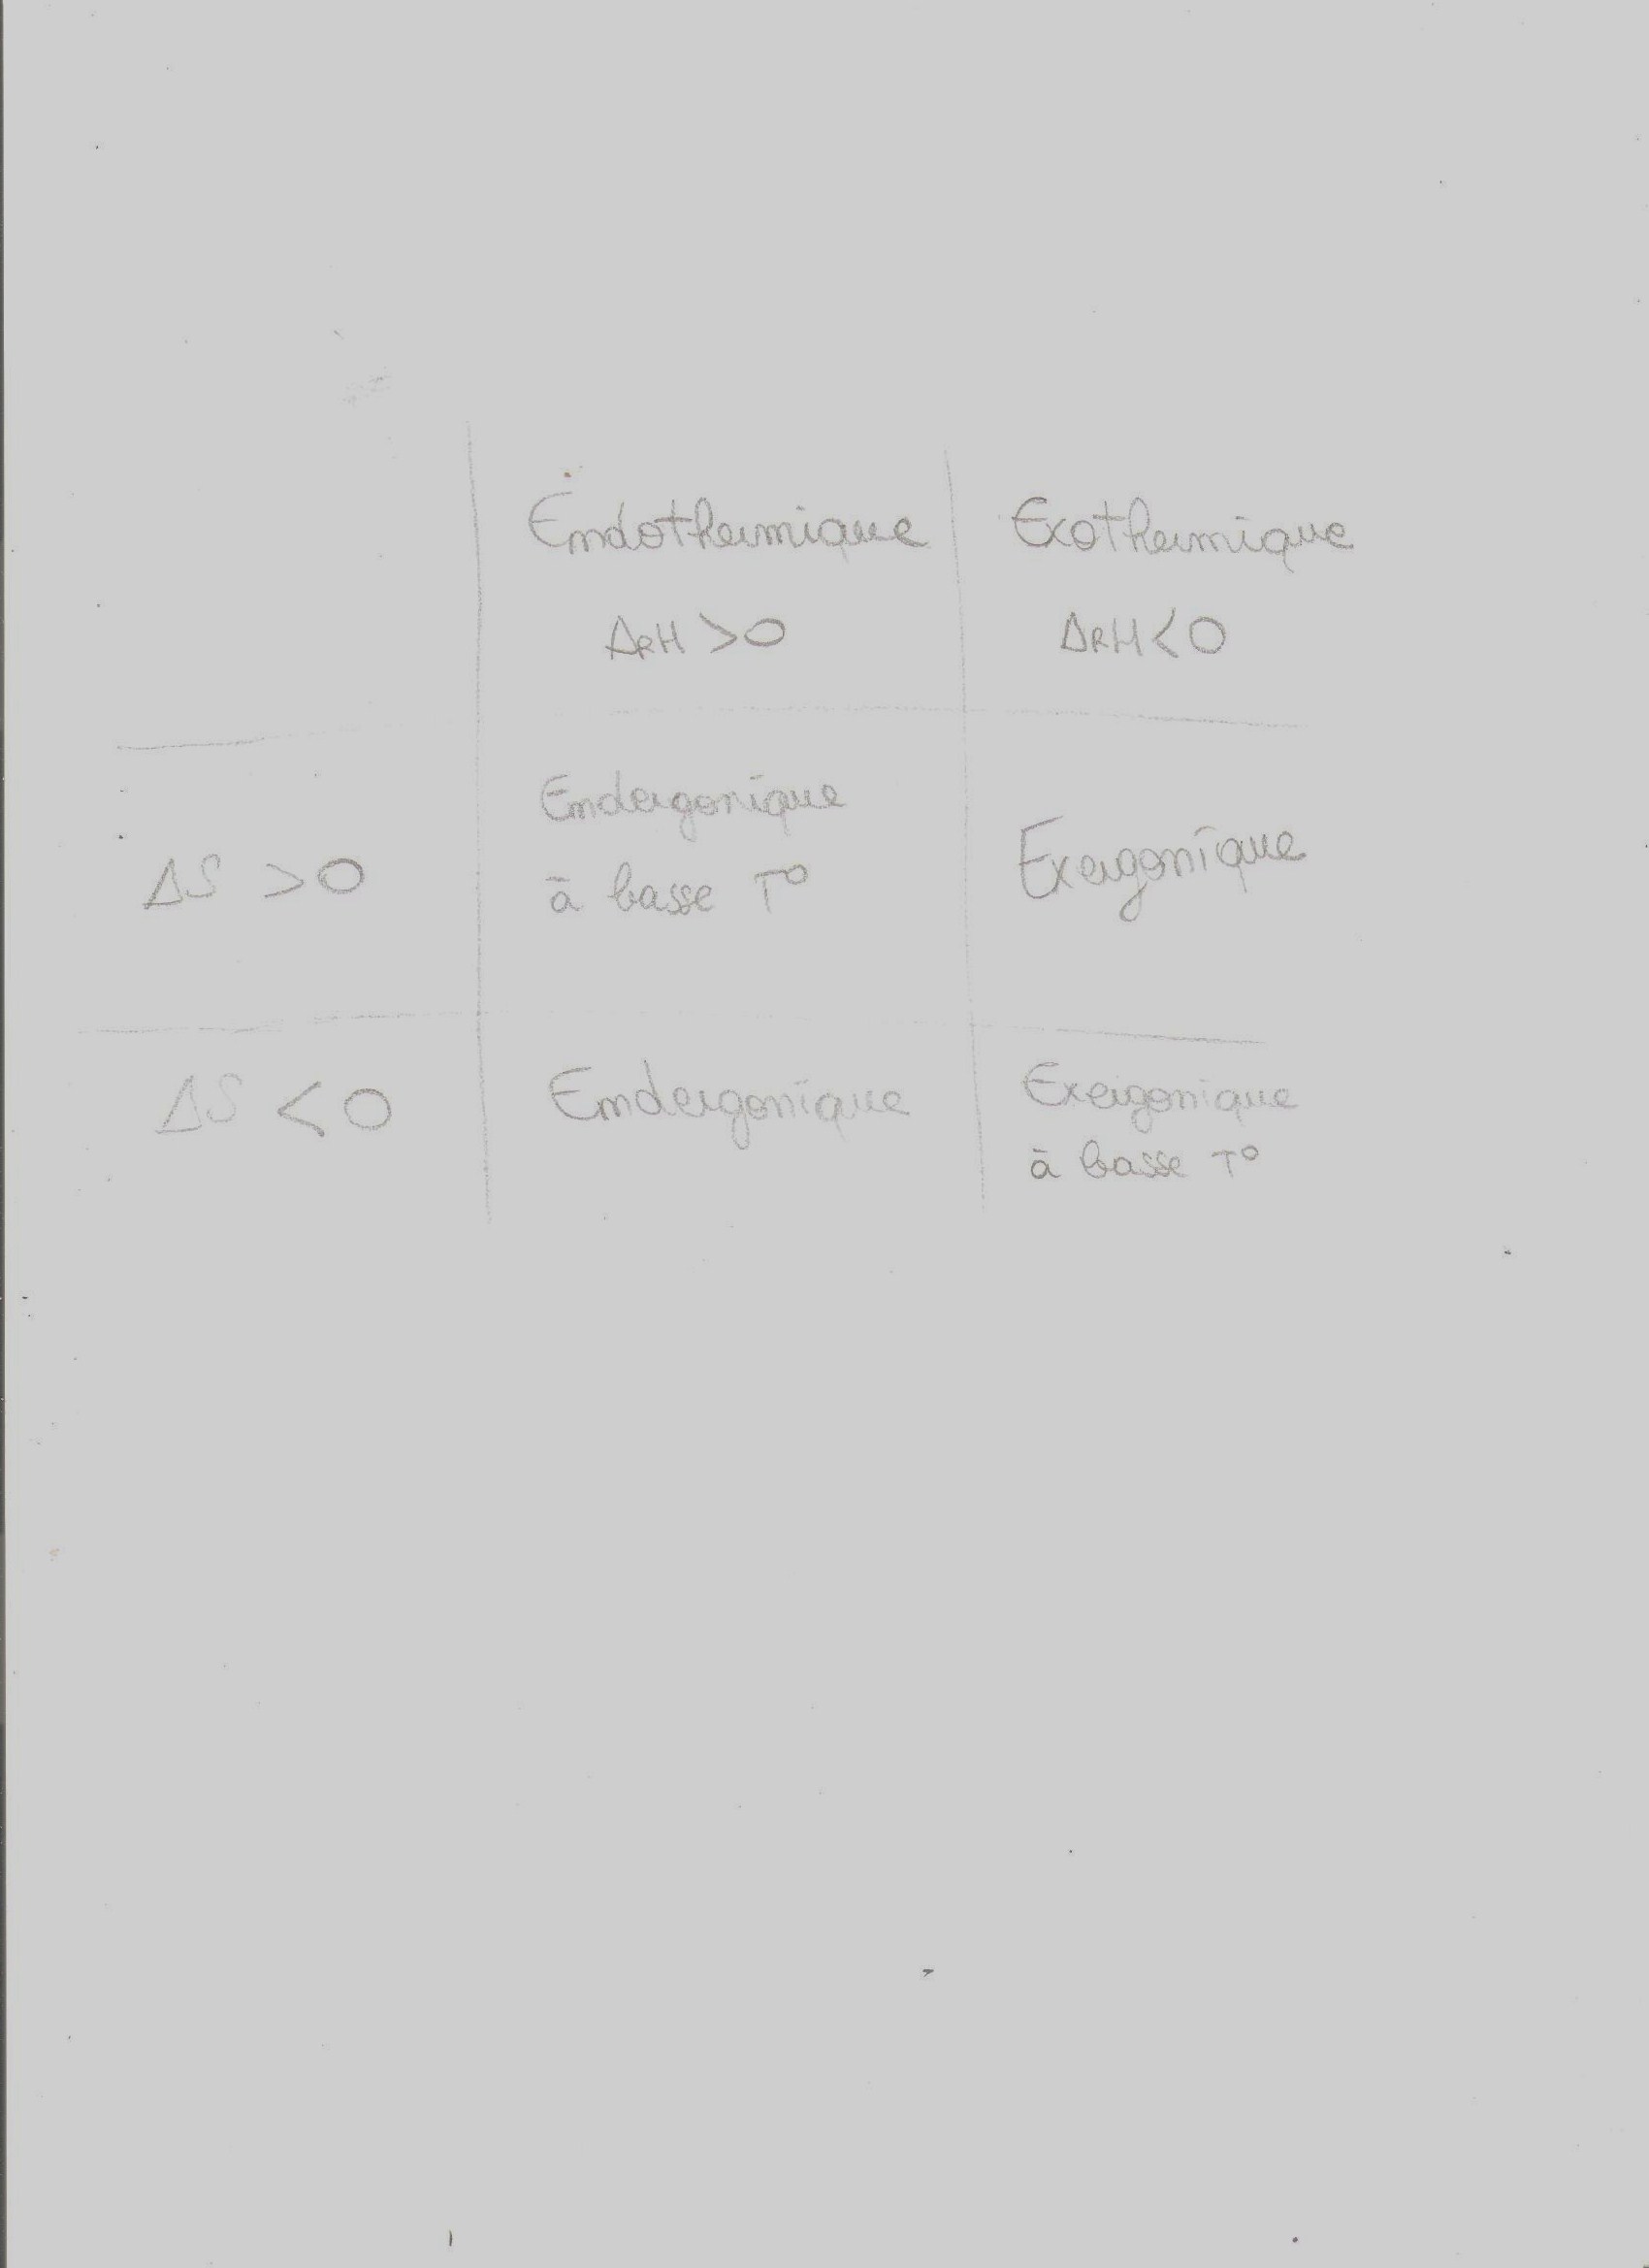 Endothermique Exothermique
ΔRH >0 ΔRH<0
Endergonique
ΔS >0 à basse T° Exergonique
ΔS <0 Endergonique Exergonique
à basse T°